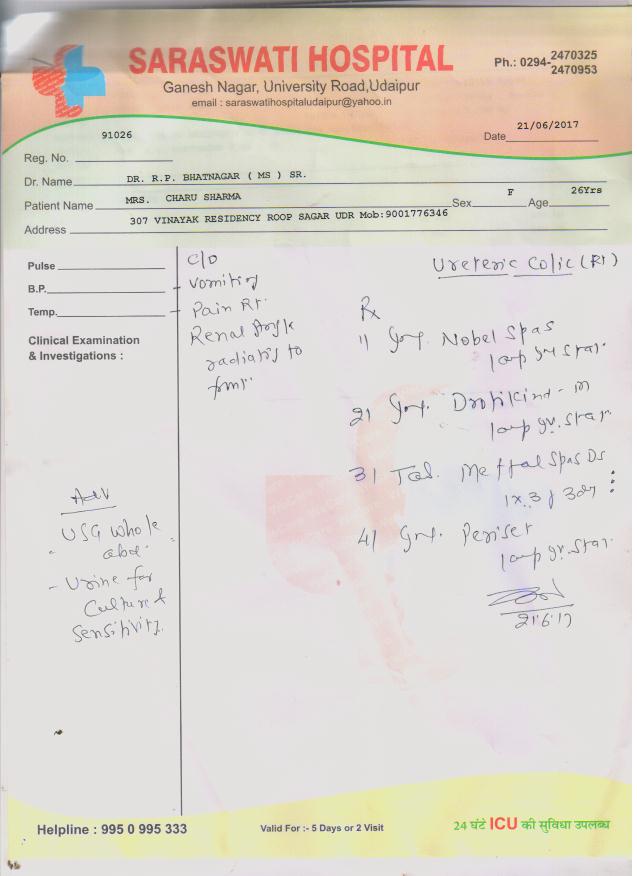 SARASWATI HOSPITAL
Ganesh Nagar, University Road,Udaipur
email : saraswatihospitaludaipur@yahoo.in
Ph.: 0294-2470325
2470953
91026
Reg. No.
Date 21/06/2017
Dr. Name DR. R.P. BHATNAGAR ( MS ) SR.
Patient Name MRS. CHARU SHARMA Sex F Age 26Yrs
Address 307 VINAYAK RESIDENCY ROOP SAGAR UDR Mob:9001776346
Pulse
B.P.
Temp.
Clinical Examination
& Investigations :
C/O
- Vomiting
- Pain Rt.
Renal Angle
radiating to
front
Adv
- USG Whole
abd.
- Urine for
Culture &
Sensitivity.
Ureteric Colic (Rt)
Rx
1) Nobel Spas
1 amp stat.
2) Drotikind-M
1 amp stat.
3) Tab. Meftal Spas DS
1x3
4) Periset
1 amp stat.
21.6.17
Helpline : 995 0 995 333
Valid For :- 5 Days or 2 Visit
24 घंटे ICU की सुविधा उपलब्ध